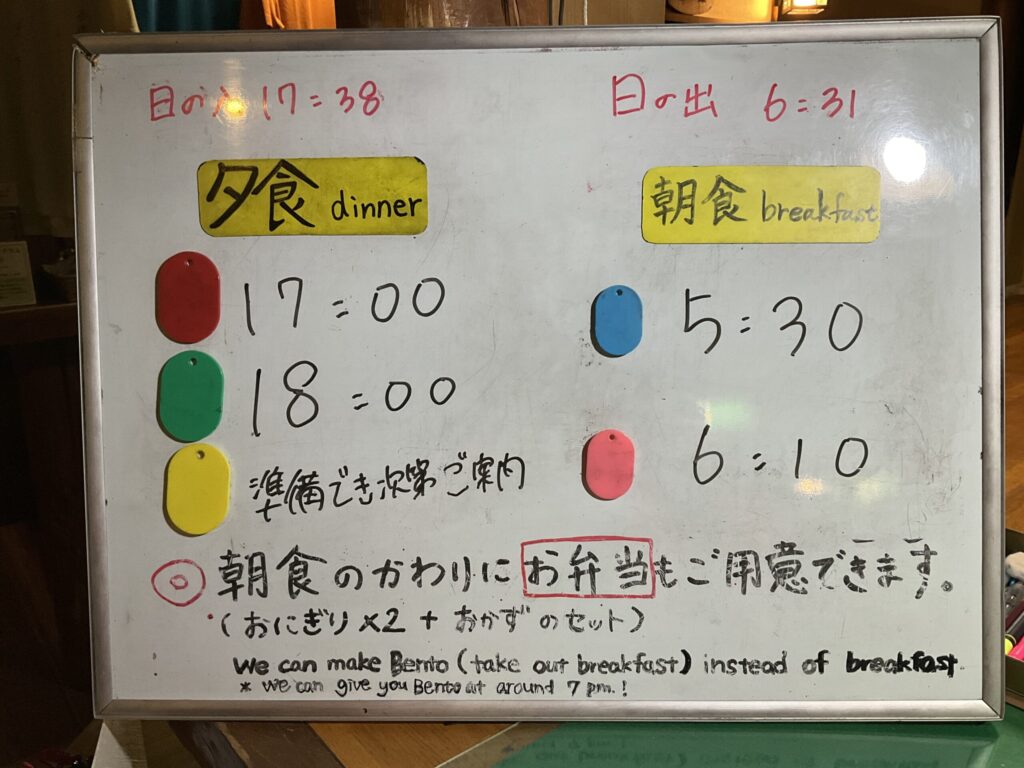 日の入 17:38
日の出 6:31
夕食 dinner
朝食 breakfast
17:00
5:30
18:00
6:10
準備でき次第ご案内
◎ 朝食のかわりにお弁当もご用意できます。
(おにぎり×2 + おかずのセット)
We can make Bento (take out breakfast) instead of breakfast
* We can give you Bento at around 7 pm.!